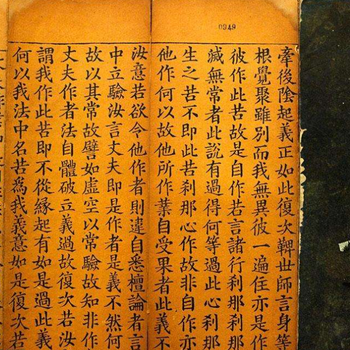 0248
牽後陰起義正如此復次鞞世師言身等
根覺聚雖別而我無異彼一遍住亦是作
彼作此苦故是自作若言諸行刹那刹那
滅無常者此說有過得何等過此心刹那
生之苦不即此苦刹那心作故非自作亦
他作何以故他所作業自受果者此義不
汝意若欲令他作者則違自悉檀論者言
中立驗汝言丈夫即是作者是義不然何
故以其常故譬如虛空以常驗故知非作
丈夫作者法自體破立義過故復次若汝
謂我作此苦即不從緣起有如是過此義
何以我法中名苦為我義意如是復次若